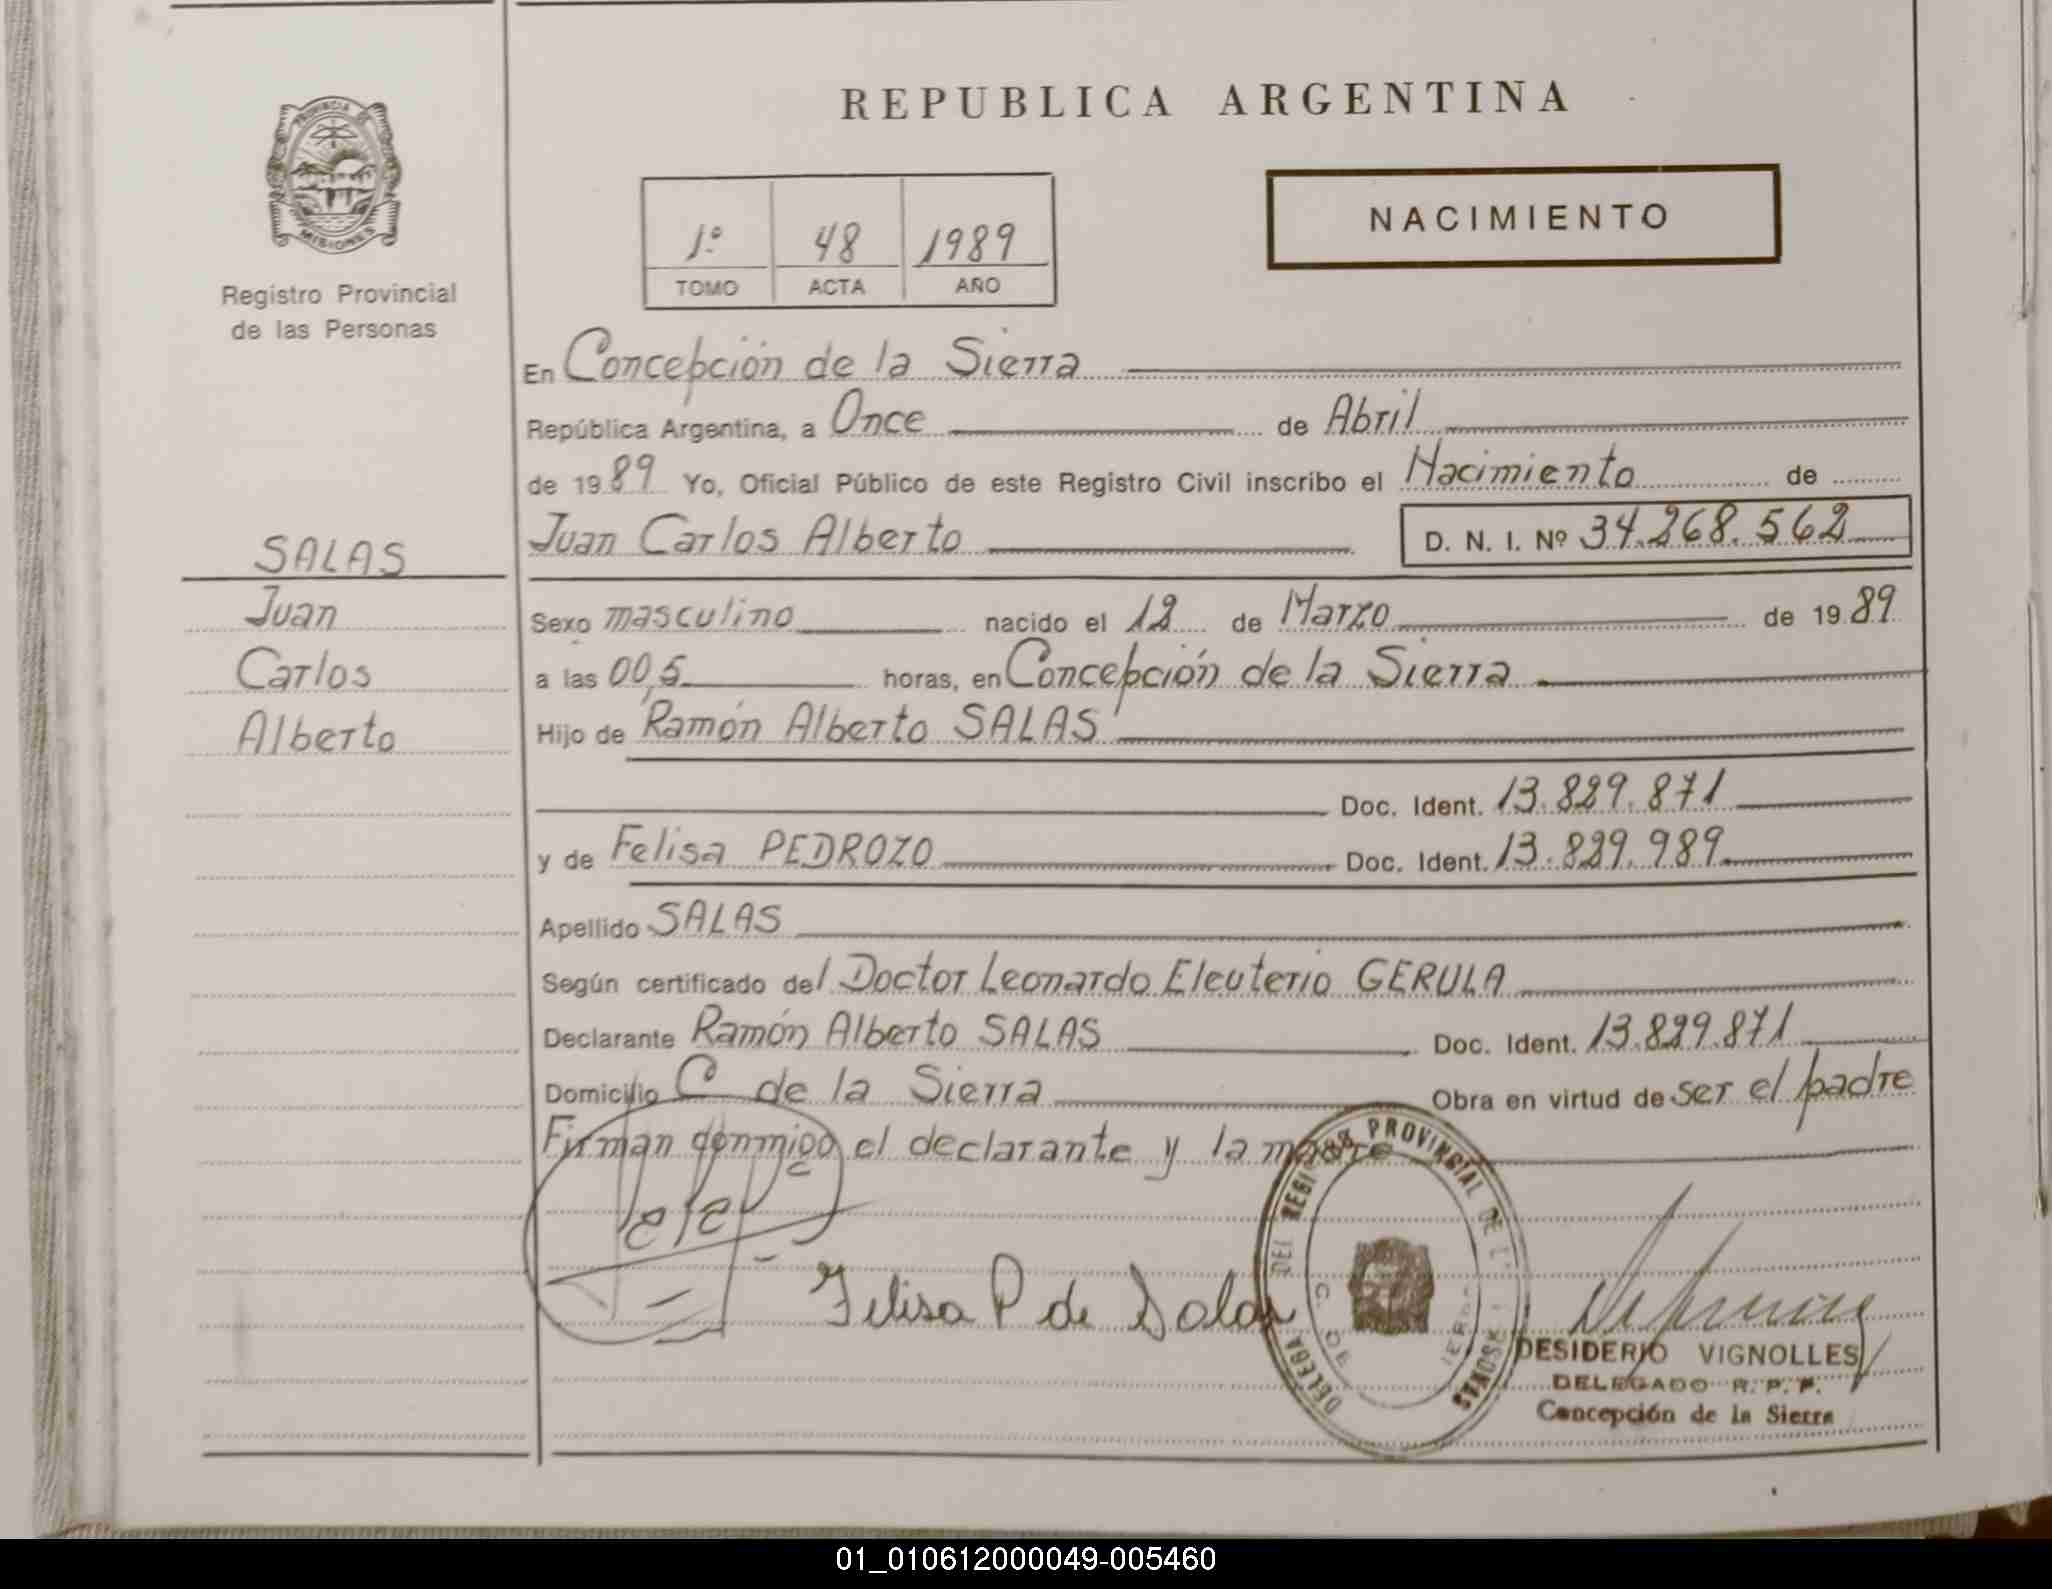 REPUBLICA ARGENTINA
PROVINCIA DE
MISIONES
Registro Provincial
de las Personas
1º 48 1989
TOMO ACTA AÑO
NACIMIENTO
En Concepción de la Sierra
República Argentina, a Once de Abril
de 1989 Yo, Oficial Público de este Registro Civil inscribo el Nacimiento de
Juan Carlos Alberto D. N. I. Nº 34.268.562
SALAS
Juan
Carlos
Alberto
Sexo masculino nacido el 12 de Marzo de 1989
a las 00,5 horas, en Concepción de la Sierra
Hijo de Ramón Alberto SALAS
Doc. Ident. 13.829.871
y de Felisa PEDROZO Doc. Ident. 13.829.989
Apellido SALAS
Según certificado del Doctor Leonardo Eleuterio GERULA
Declarante Ramón Alberto SALAS Doc. Ident. 13.829.871
Domicilio C de la Sierra Obra en virtud de ser el padre
Firman conmigo el declarante y la madre
Felisa P de Salas
DEL PROVINCIAL DE
C. DE
DESIDERIO VIGNOLLES
DELEGADO R. P. P.
Concepción de la Sierra
01_010612000049-005460